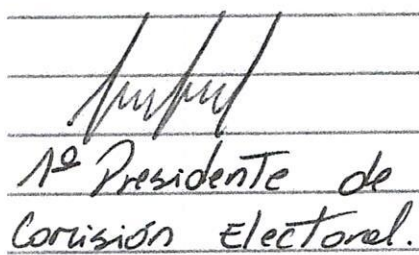 1º Presidente de
Comisión Electoral.